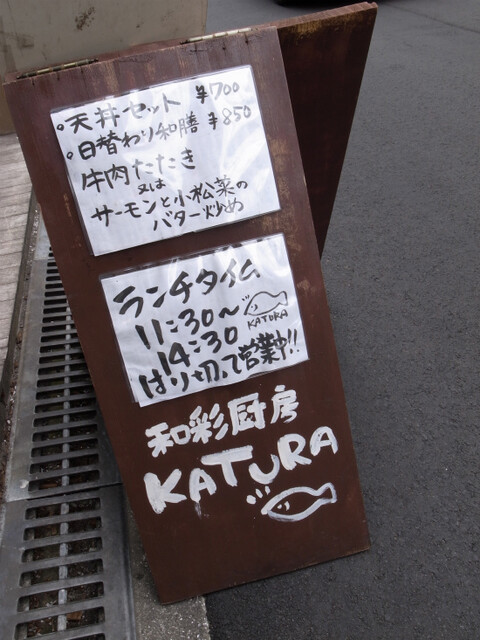 天丼セット ¥700
日替わり和膳 ¥850
牛肉たたき
又は
サーモンと小松菜の
バター炒め
ランチタイム
11:30〜
14:30
KATURA
はり切って営業中!!
和彩厨房
KATURA